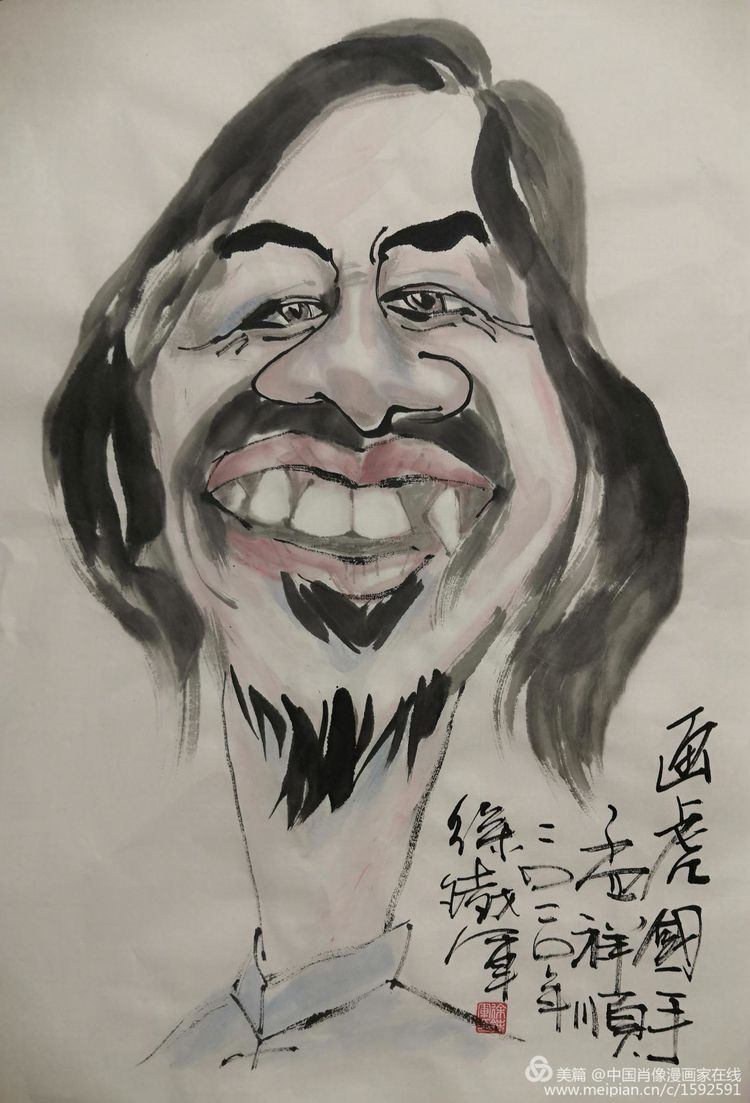 画虎國手
孟祥順
二〇二〇年
徐鐵軍
美篇 @中国肖像漫画家在线
www.meipian.cn/c/1592591